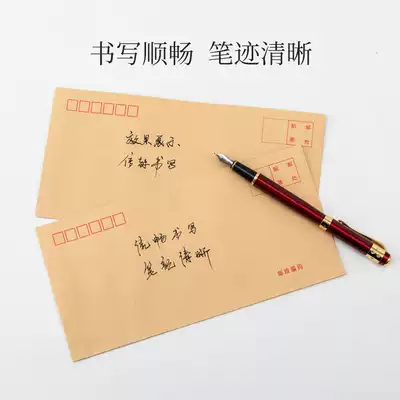 书写顺畅 笔迹清晰
效果展示
信封书写
贴 邮
票 处
贴 邮
票 处
流畅书写
笔迹清晰